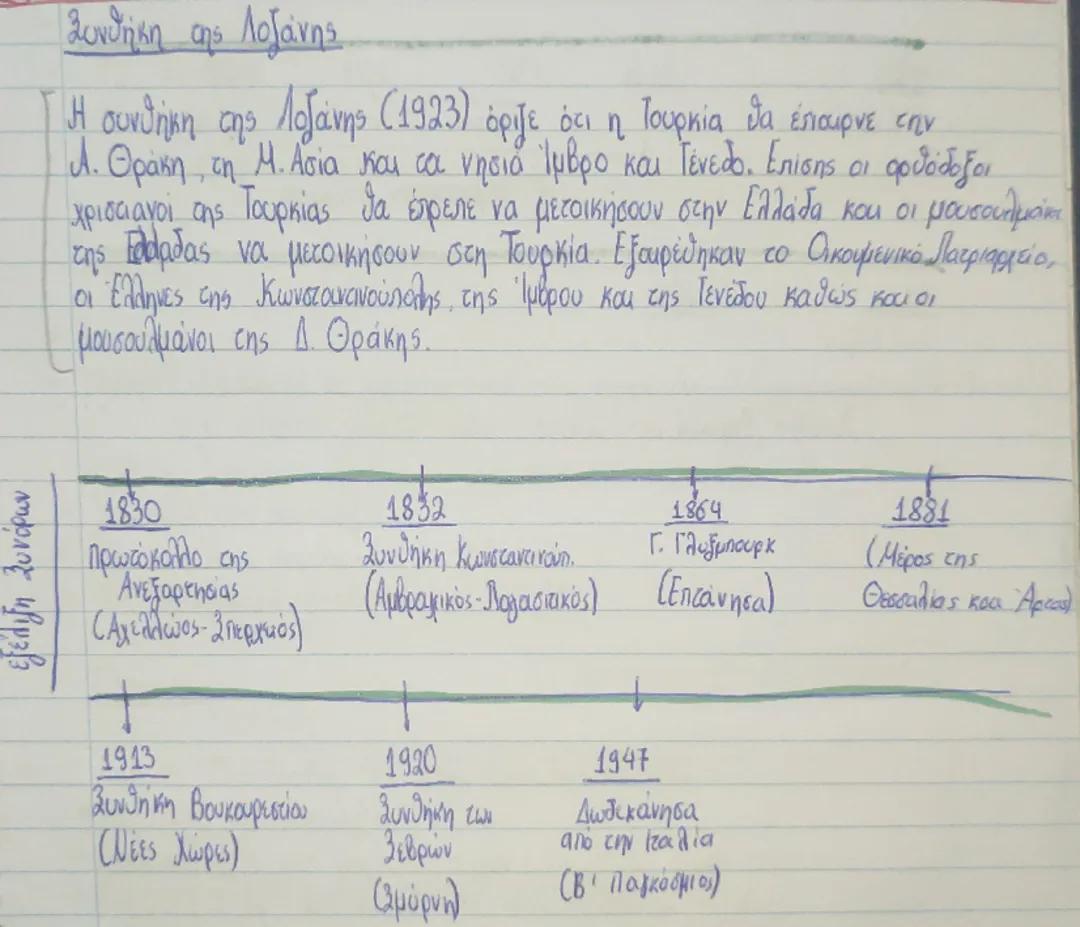 Συνθήκη της Λοζάνης
Η συνθήκη της Λοζάνης (1923) όριζε ότι η Τουρκία θα έπαιρνε την
Α. Θράκη, τη Μ. Ασία και τα νησιά Ίμβρο και Τένεδο. Επίσης οι ορθόδοξοι
χριστιανοί της Τουρκίας θα έπρεπε να μετοικήσουν στην Ελλάδα και οι μουσουλμάνοι
της Ελλάδας να μετοικήσουν στη Τουρκία. Εξαιρέθηκαν το Οικουμενικό Πατριαρχείο,
οι Έλληνες της Κωνσταντινούπολης, της Ίμβρου και της Τενέδου καθώς και οι
μουσουλμάνοι της Δ. Θράκης.
εξέλιξη Συνόρων
1830
Πρωτόκολλο της
Ανεξαρτησίας
(Αχελλώος-Σπερχιός)
1832
Συνθήκη Κωνσταντινούπ.
(Αμβρακικός-Παγασιτικός)
1864
Γ. Γλυξμπουρκ
(Επτάνησα)
1881
(Μέρος της
Θεσσαλίας και Άρτας)
1913
Συνθήκη Βουκουρεστίου
(Νέες Χώρες)
1920
Συνθήκη των
Σεβρών
(Σμύρνη)
1947
Δωδεκάνησα
από την Ιταλία
(Β' Παγκόσμιος)